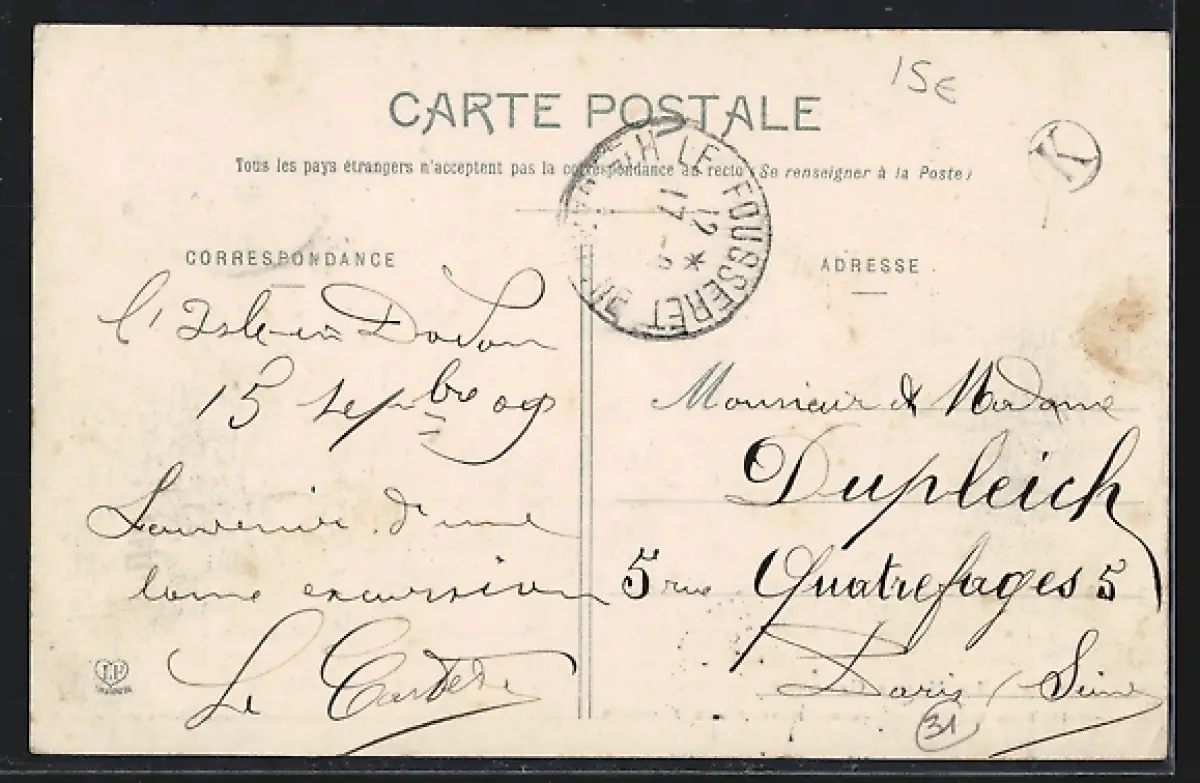 15€
CARTE POSTALE
K
Tous les pays étrangers n'acceptent pas la correspondance au recto (Se renseigner à la Poste)
LE FOUSSERET
12 *
17
CORRESPONDANCE
ADRESSE
l'Isle-en Dodon
15 septbre 09
Souvenir d'une
excursion
Le
Monsieur & Madame
Dupleich
5 rue Quatrefages 5
Paris (Seine
31